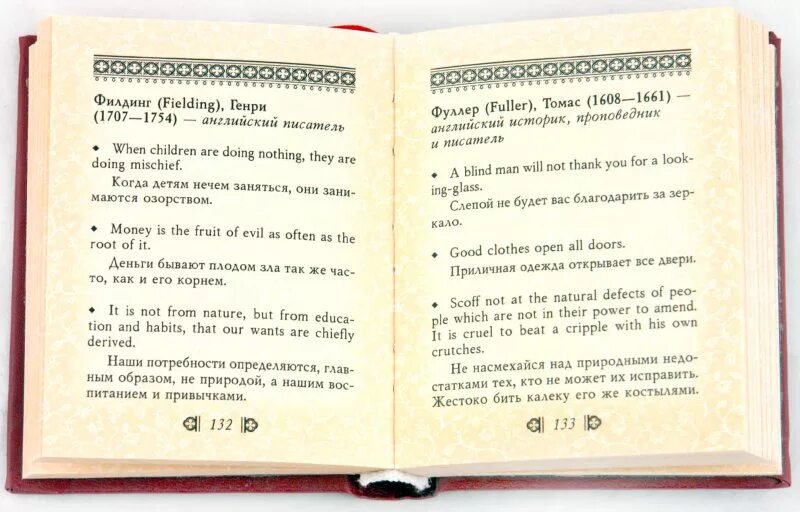 Филдинг (Fielding), Генри
(1707—1754) — английский писатель
◆ When children are doing nothing, they are
doing mischief.
Когда детям нечем заняться, они зани-
маются озорством.
◆ Money is the fruit of evil as often as the
root of it.
Деньги бывают плодом зла так же час-
то, как и его корнем.
◆ It is not from nature, but from educa-
tion and habits, that our wants are chiefly
derived.
Наши потребности определяются, глав-
ным образом, не природой, а нашим вос-
питанием и привычками.
132
Фуллер (Fuller), Томас (1608—1661) —
английский историк, проповедник
и писатель
◆ A blind man will not thank you for a look-
ing-glass.
Слепой не будет вас благодарить за зер-
кало.
◆ Good clothes open all doors.
Приличная одежда открывает все двери.
◆ Scoff not at the natural defects of peo-
ple which are not in their power to amend.
It is cruel to beat a cripple with his own
crutches.
Не насмехайся над природными недо-
статками тех, кто не может их исправить.
Жестоко бить калеку его же костылями.
133